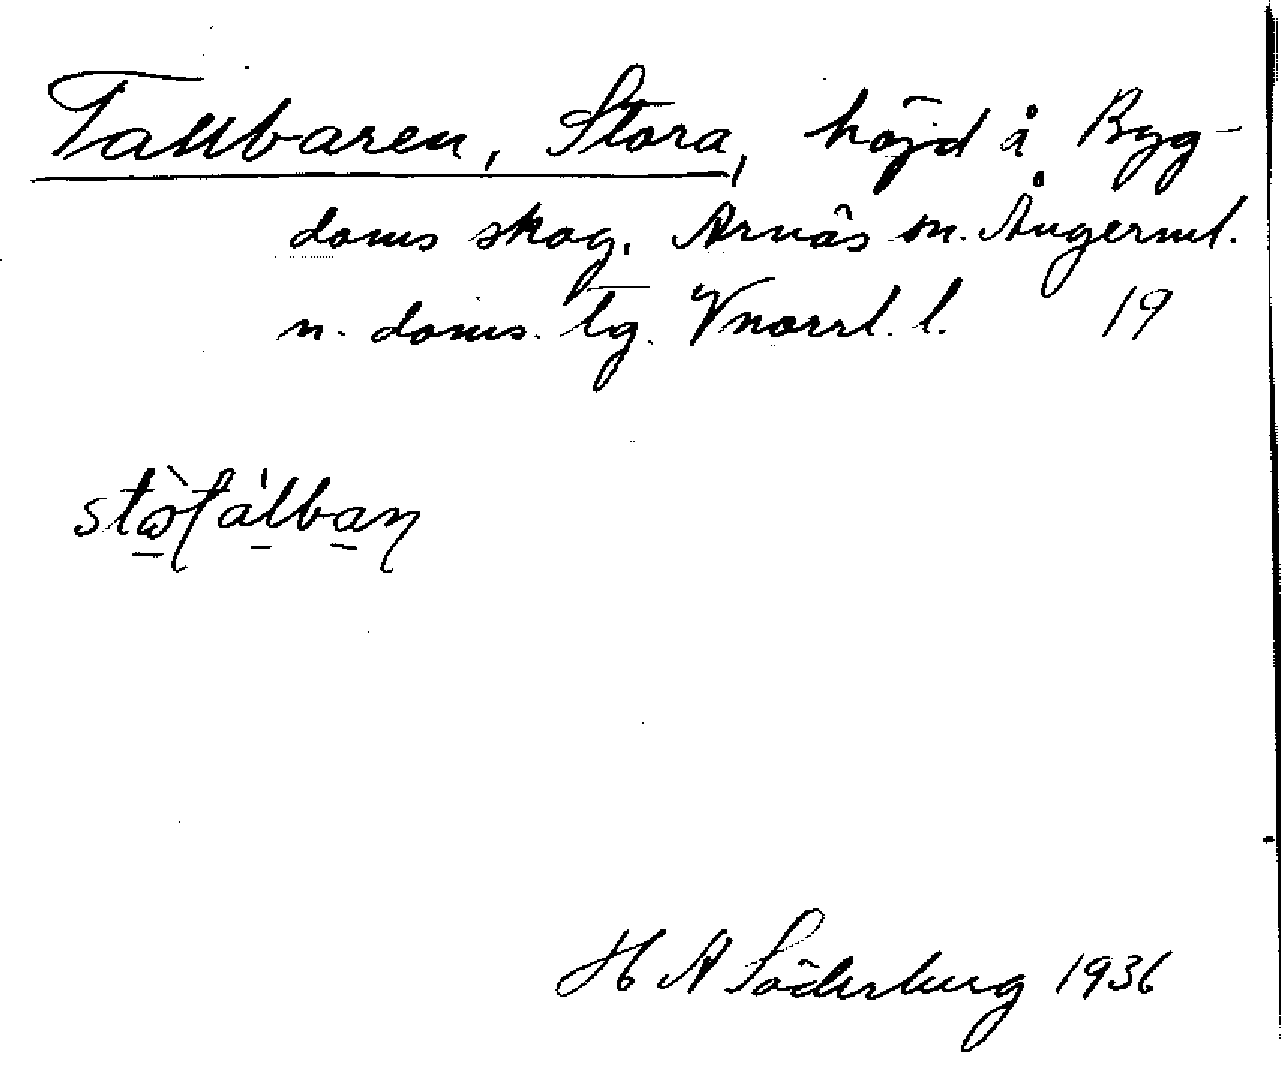 Tallbaren, Stora, höjd å Byg-
doms skog, Arnäs sn. Ångerml.
n. doms. tg. Vnorrl. l. 19
H A Söderberg 1936